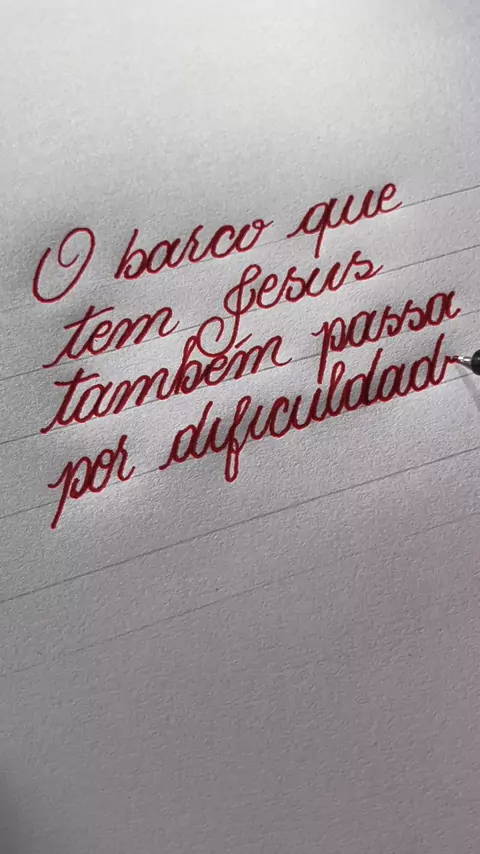 O barco que
tem Jesus
também passa
por dificuldad